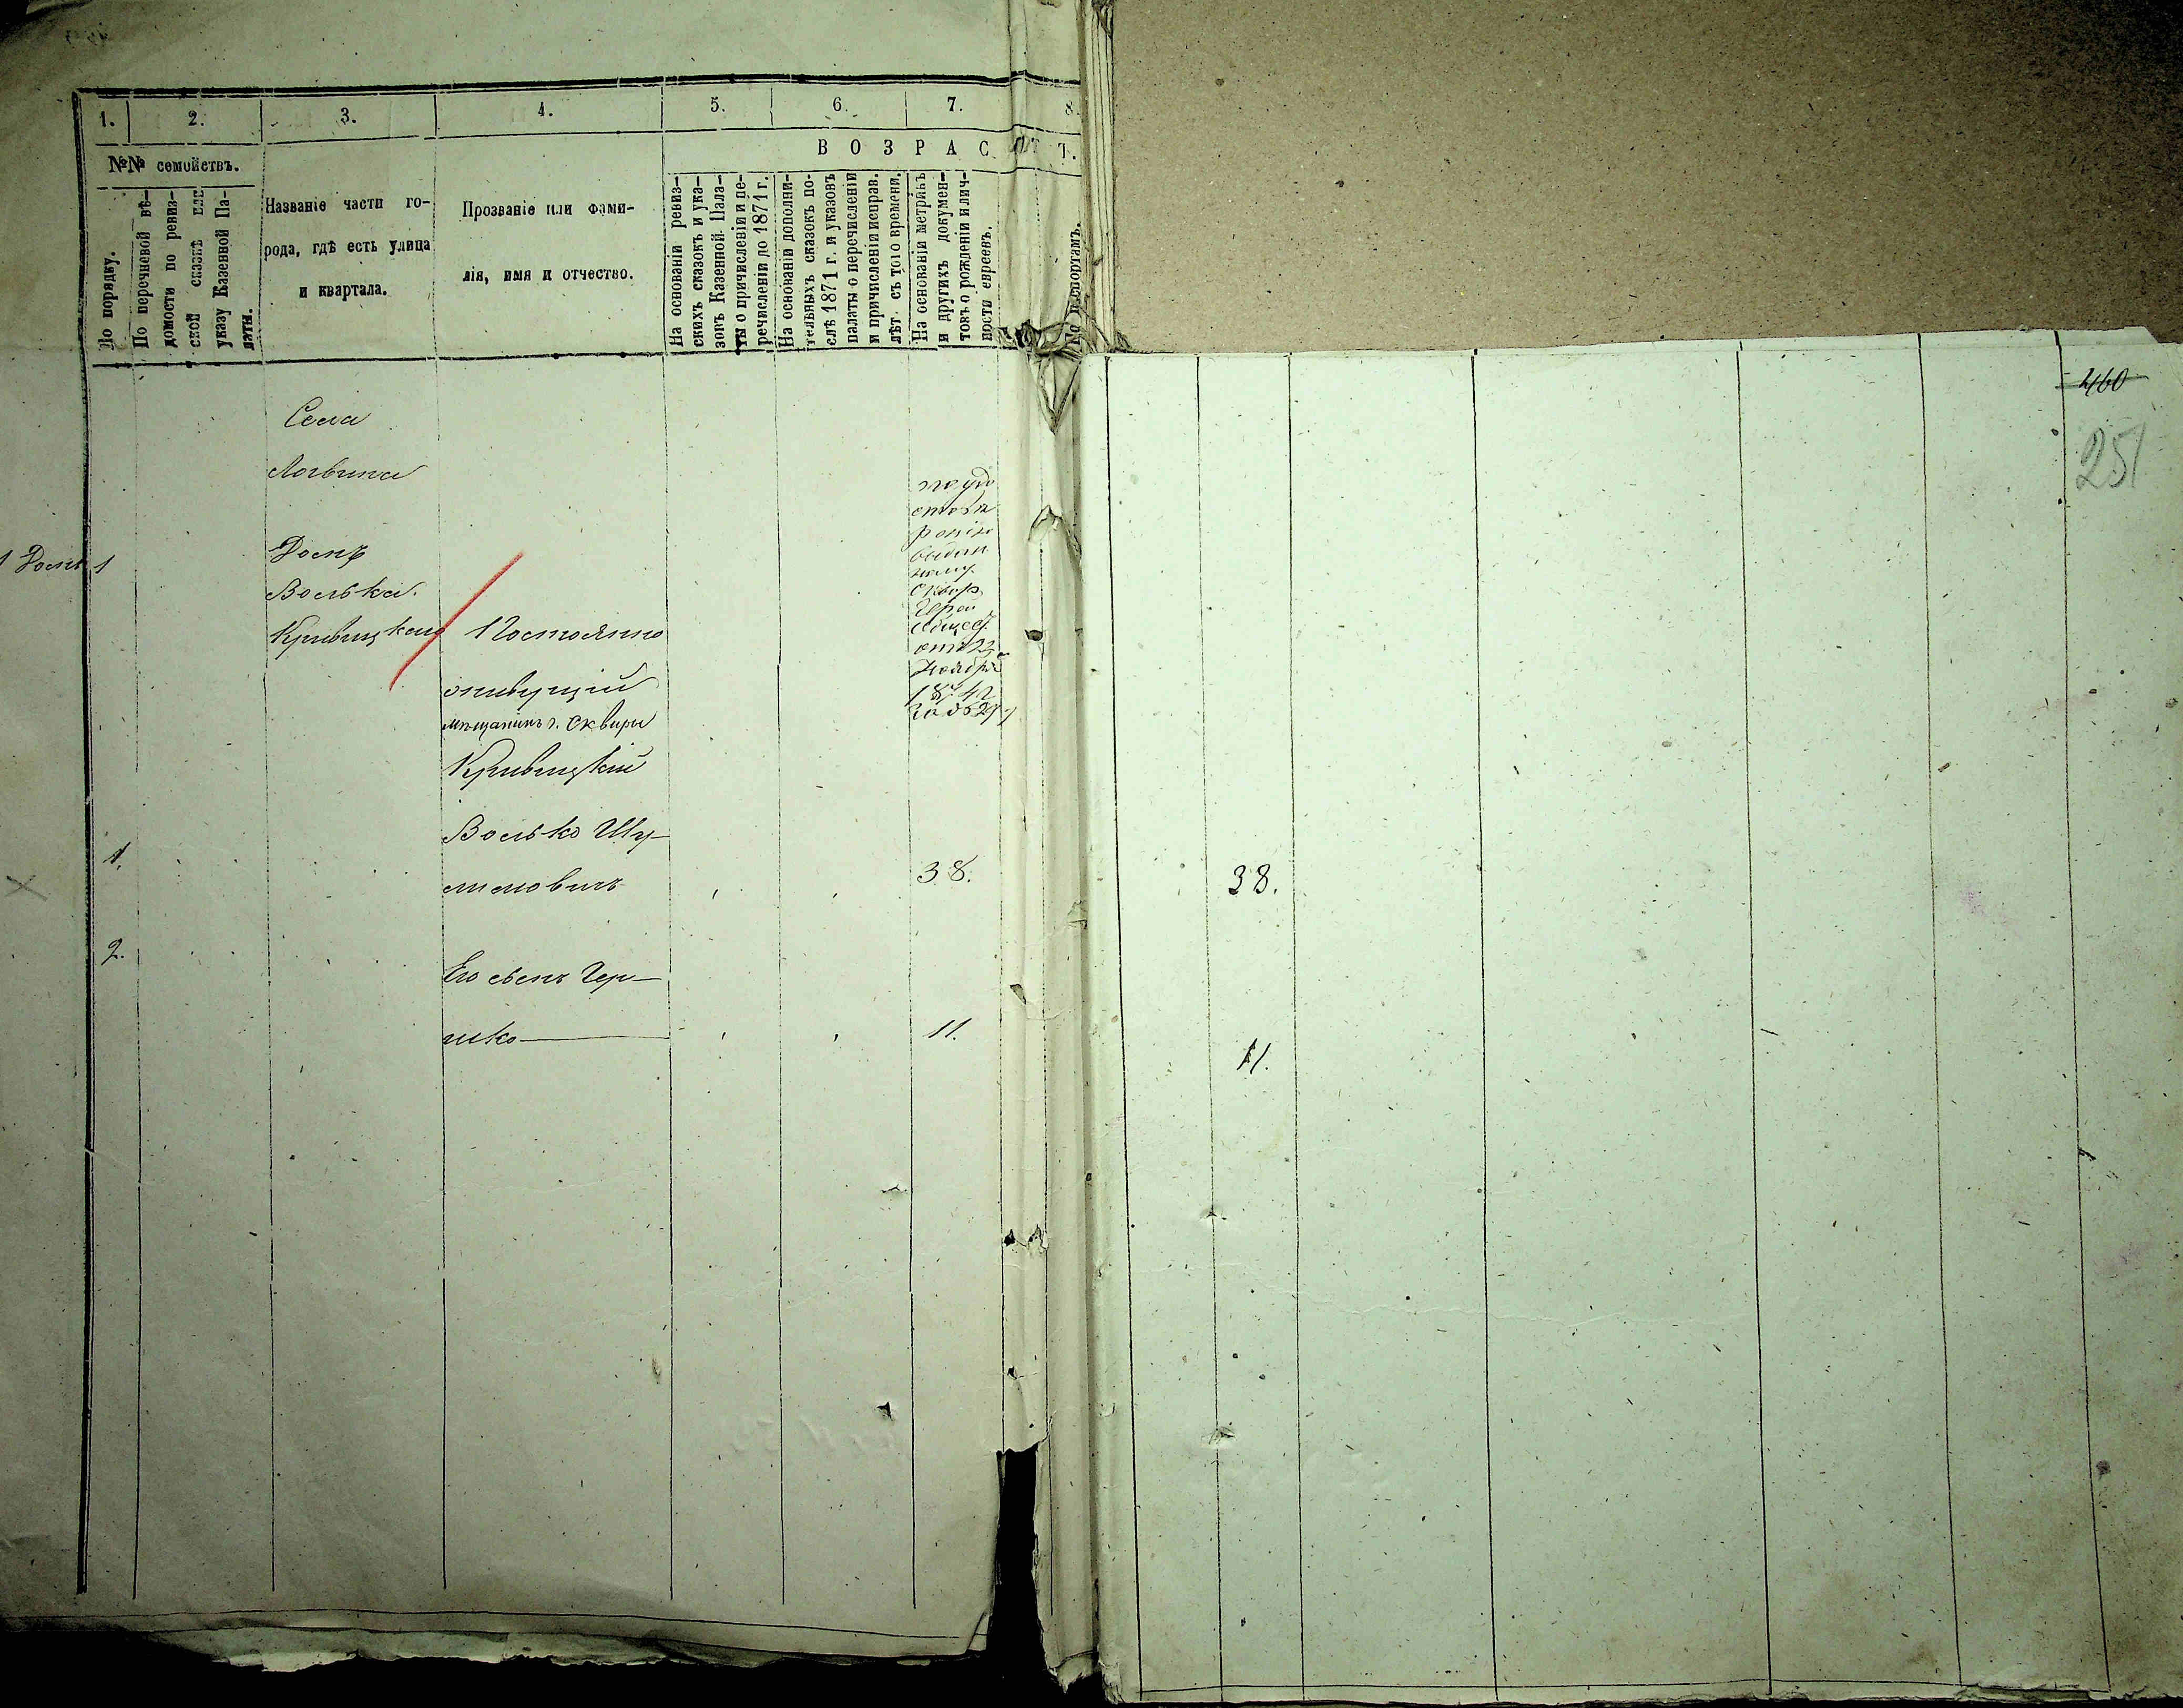 1. 2. 3. 4. 5. 6. 7. 8.
ВОЗРАСТ.
№№ семействъ.
По порядку.
По перечневой вѣ-
домости по ревиз-
ской сказкѣ или
указу Казенной Па-
латы.
Названіе части го-
рода, гдѣ есть улица
и квартала.
Прозваніе или фами-
лія, имя и отчество.
На основаніи ревиз-
скихъ сказокъ и ука-
зовъ Казенной Пала-
ты о причисленіи и пе-
речисленіи до 1871 г.
На основаніи дополни-
тельныхъ сказокъ по-
слѣ 1871 г. и указовъ
палаты о перечисленіи
и причисленіи исправ.
лѣт. съ того времени.
На основаніи метрикъ
и другихъ докумен-
товъ о рожденіи и лич-
ности евреевъ.
По паспортамъ.
460
251
Села
Логвина
1 Домъ 1
Домъ
Волька
Кривицкаго
Постоянно
живущій
мѣщанинъ г. Сквиры
Кривицкій
Волько Шу-
лимовичъ
по удо
стовѣ
ренію
выдан
ному
Сквир
Обществ
отъ 23
Ноября
1.
38.
38.
2.
Его сынъ Гер-
шко
11.
11.